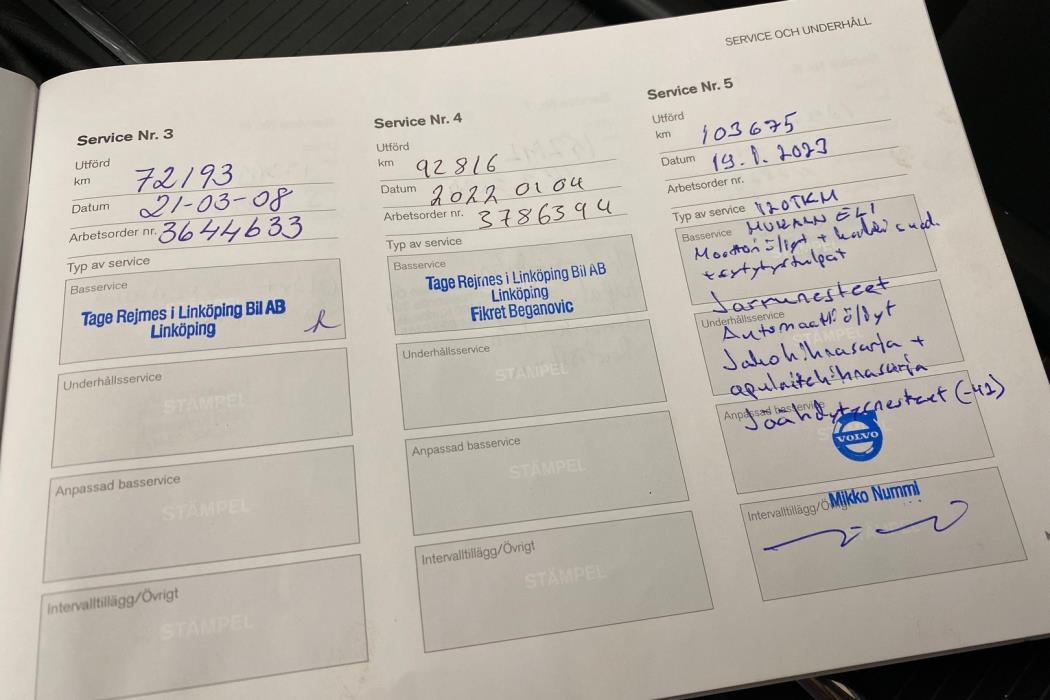 SERVICE OCH UNDERHÅLL
Service Nr. 3
Utförd
km 72193
Datum 21-03-08
Arbetsorder nr. 3644633
Typ av service
Basservice
Tage Rejmes i Linköping Bil AB
Linköping
Underhållsservice
STÄMPEL
Anpassad basservice
STÄMPEL
Intervalltillägg/Övrigt
STÄMPEL
Service Nr. 4
Utförd
km 92816
Datum 2022 01 04
Arbetsorder nr. 3786394
Typ av service
Basservice
Tage Rejmes i Linköping Bil AB
Linköping
Fikret Beganovic
Underhållsservice
STÄMPEL
Anpassad basservice
STÄMPEL
Intervalltillägg/Övrigt
STÄMPEL
Service Nr. 5
Utförd
km 103675
Datum 19.1.2023
Arbetsorder nr.
Typ av service 120TKM
Basservice MUKAAN ELI
Moottoriöljyt +
+ sytytystulpat
Jarrunesteet
Underhållsservice
Automaattiöljyt
Jakohihnasarja +
apulaitehihnasarja
Anpassad basservice
Jäähdytysnesteet (-42)
VOLVO
Mikko Nummi
Intervalltillägg/Övrigt